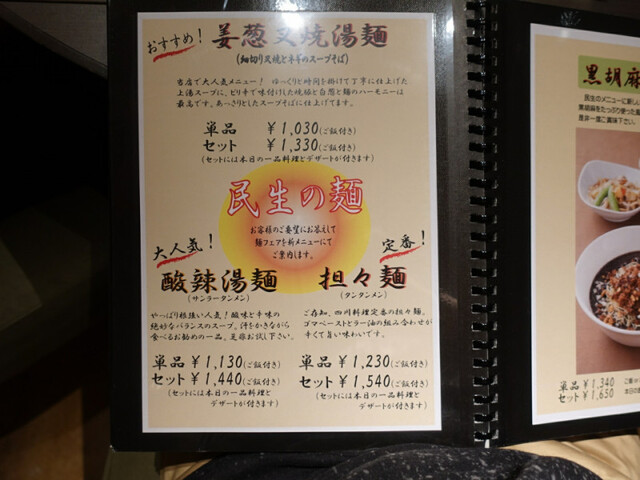 おすすめ!
姜葱叉焼湯麺
(細切り叉焼とネギのスープそば)
当店で大人気メニュー! ゆっくりと時間を掛けて丁寧に仕上げた
上湯スープに、ピリ辛で味付けした焼豚と白葱と麺のハーモニーは
最高です。あっさりとしたスープそばに仕上げてます。
単品 ¥1,030(ご飯付き)
セット ¥1,330(ご飯付き)
(セットには本日の一品料理とデザートが付きます)
民生の麺
お客様のご要望にお答えして
麺フェアを新メニューにて
ご案内します。
大人気!
酸辣湯麺
(サンラータンメン)
やっぱり根強い人気!酸味と辛味の
絶妙なバランスのスープ。汗をかきながら
食べるお勧めの一品。是非お試し下さい。
単品 ¥1,130(ご飯付き)
セット ¥1,440(ご飯付き)
(セットには本日の一品料理と
デザートが付きます)
定番!
担々麺
(タンタンメン)
ご存知、四川料理定番の担々麺。
ゴマペーストとラー油の組み合わせが
辛くて旨い味わいです。
単品 ¥1,230(ご飯付き)
セット ¥1,540(ご飯付き)
(セットには本日の一品料理と
デザートが付きます)
黒胡麻
民生のメニューに新しく
黒胡麻をたっぷり使った風
是非一度ご賞味下さい。
単品 ¥1,340
セット ¥1,650
本日の